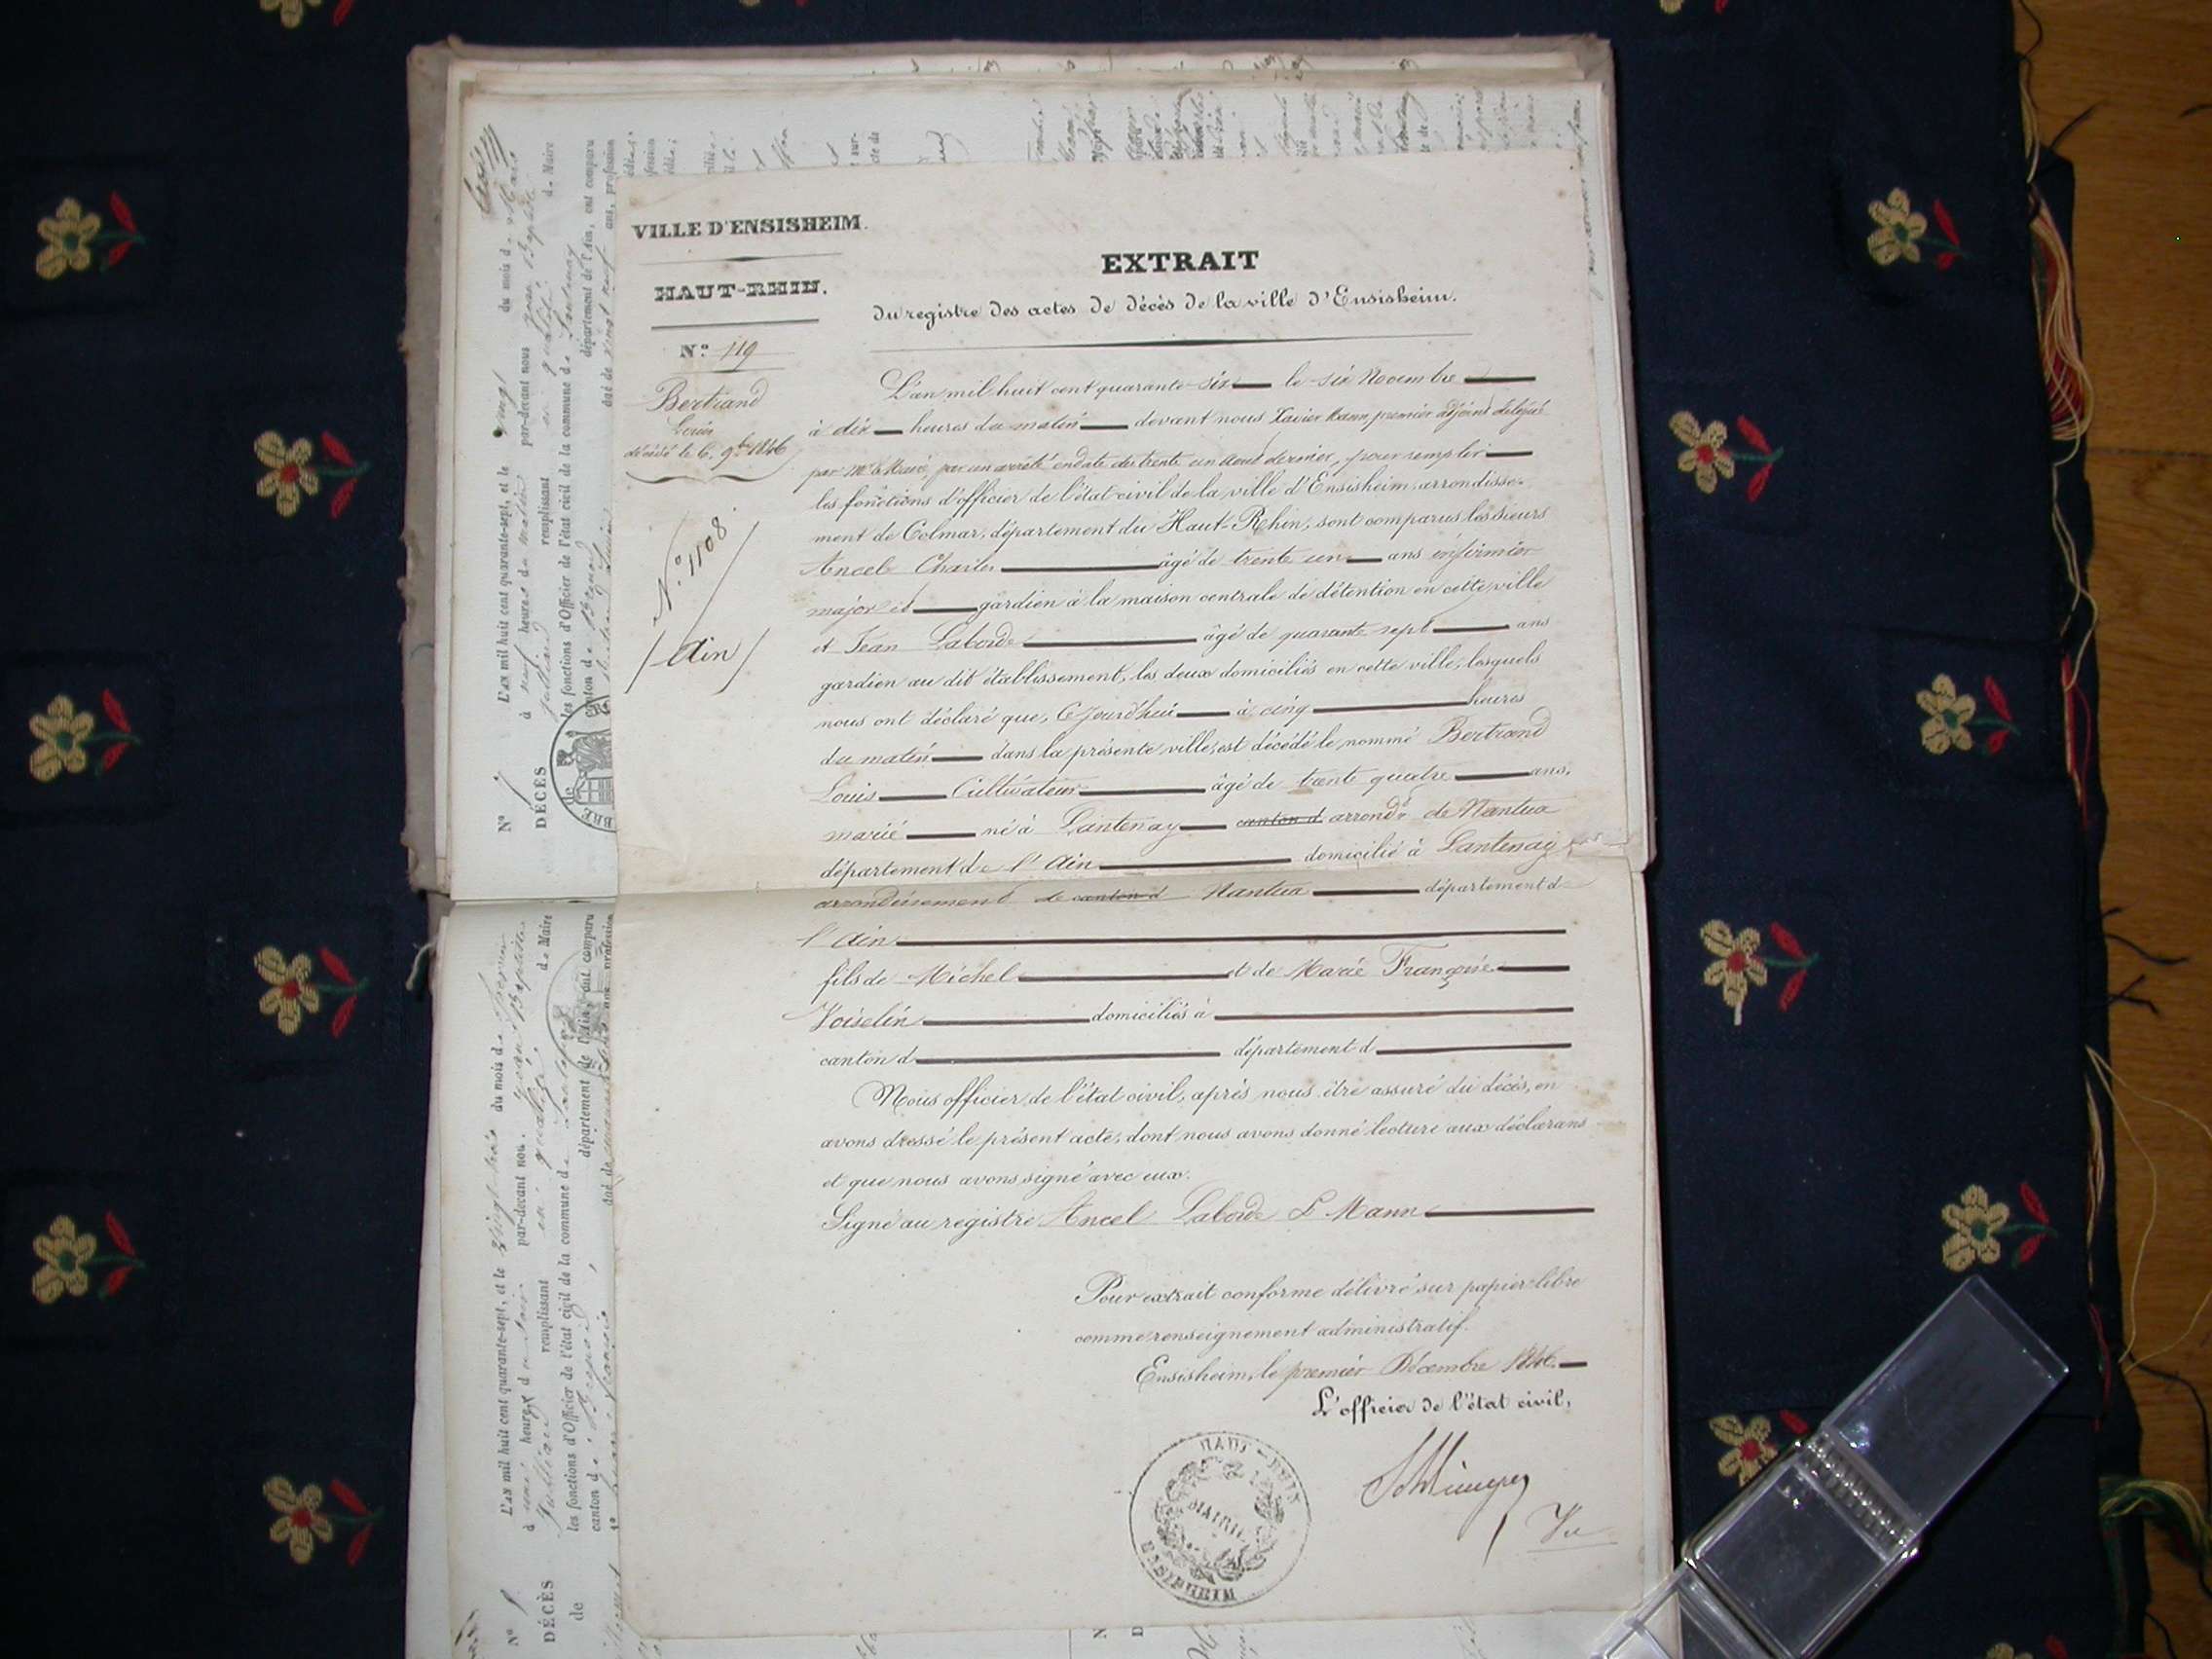 VILLE D'ENSISHEIM.
HAUT-RHIN.
N.º 119
Bertrand
Louis
décédé le 6. 9.bre 1846
N.º 1108
Ain
EXTRAIT
du registre des actes de décès de la ville d'Ensisheim.
L'an mil huit cent quarante-six le six Novembre
à dix heures du matin devant nous Xavier Mann, premier adjoint délégué
par Mr le Maire, par un arrêté en date du trente un Aout dernier, pour remplir
les fonctions d'officier de l'état civil de la ville d'Ensisheim, arrondisse-
ment de Colmar, département du Haut-Rhin, sont comparus les sieurs
Ancel Charles âgé de trente un ans infirmier
major et gardien à la maison centrale de détention en cette ville
et Jean Laborde âgé de quarante sept ans
gardien au dit établissement, les deux domiciliés en cette ville, lesquels
nous ont déclaré que, Cejourd'hui à cinq heures
du matin dans la présente ville, est décédé le nommé Bertrand
Louis Cultivateur âgé de trente quatre ans,
marié né à Lantenay canton d arrondt de Nantua
département de l'Ain domicilié à Lantenay
arrondissement de canton d Nantua département de
l'Ain
fils de Michel et de Marie Françoise
Voiselin domiciliés à
canton d département d
Nous officier de l'état civil, après nous être assuré du décès, en
avons dressé le présent acte, dont nous avons donné lecture aux déclarans
et que nous avons signé avec eux.
Signé au registre Ancel Laborde & Mann
Pour extrait conforme délivré sur papier libre
comme renseignement administratif.
Ensisheim, le premier Décembre 1846.
L'officier de l'état civil,
Vu
HAUT-RHIN
MAIRIE
ENSISHEIM
N° 7
DÉCÈS
de
L'AN mil huit cent quarante-sept, et le vingt du mois de Mars
à neuf heures du matin par-devant nous Jean Baptiste
remplissant en qualité de Maire
les fonctions d'Officier de l'état civil de la commune de Lantenay
canton de Brenod département de l'Ain, ont comparu
âgé de vingt neuf ans, profession
N° 8
DÉCÈS
de
L'AN mil huit cent quarante-sept, et le vingt-trois du mois de
à heures du par-devant nous Jean Baptiste
remplissant en qualité de Maire
les fonctions d'Officier de l'état civil de la commune de Lantenay
canton de Brenod département de l'Ain, ont comparu